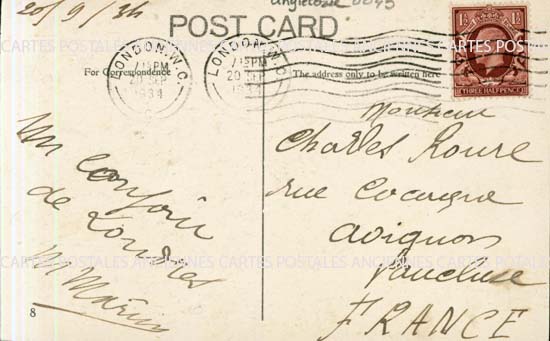 20/9/34
Angleterre 0045
POST CARD
For Correspondence
The address only to be written here
LONDON, W.C.
7 15 PM
20 SEP
1934
LONDON, W.C.
7 15 PM
20 SEP
1934
1½ 1½
THREE HALFPENCE
de Londres
Monsieur
Charles Roure
rue
Avignon
Vaucluse
FRANCE
CARTES POSTALES ANCIENNES CARTES POSTALES ANCIENNES CARTES POSTALES
8